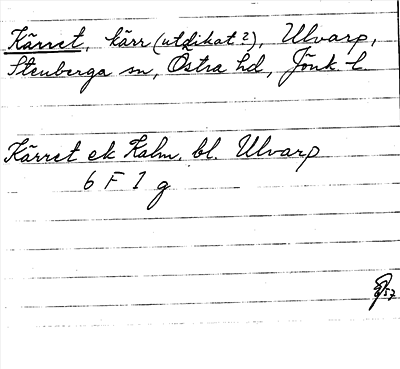 Kärret, kärr (utdikat?), Ulvarp,
Stenberga sn, Östra hd, Jönk. l.
Kärret ek Kalm. bl. Ulvarp
6 F 1 g